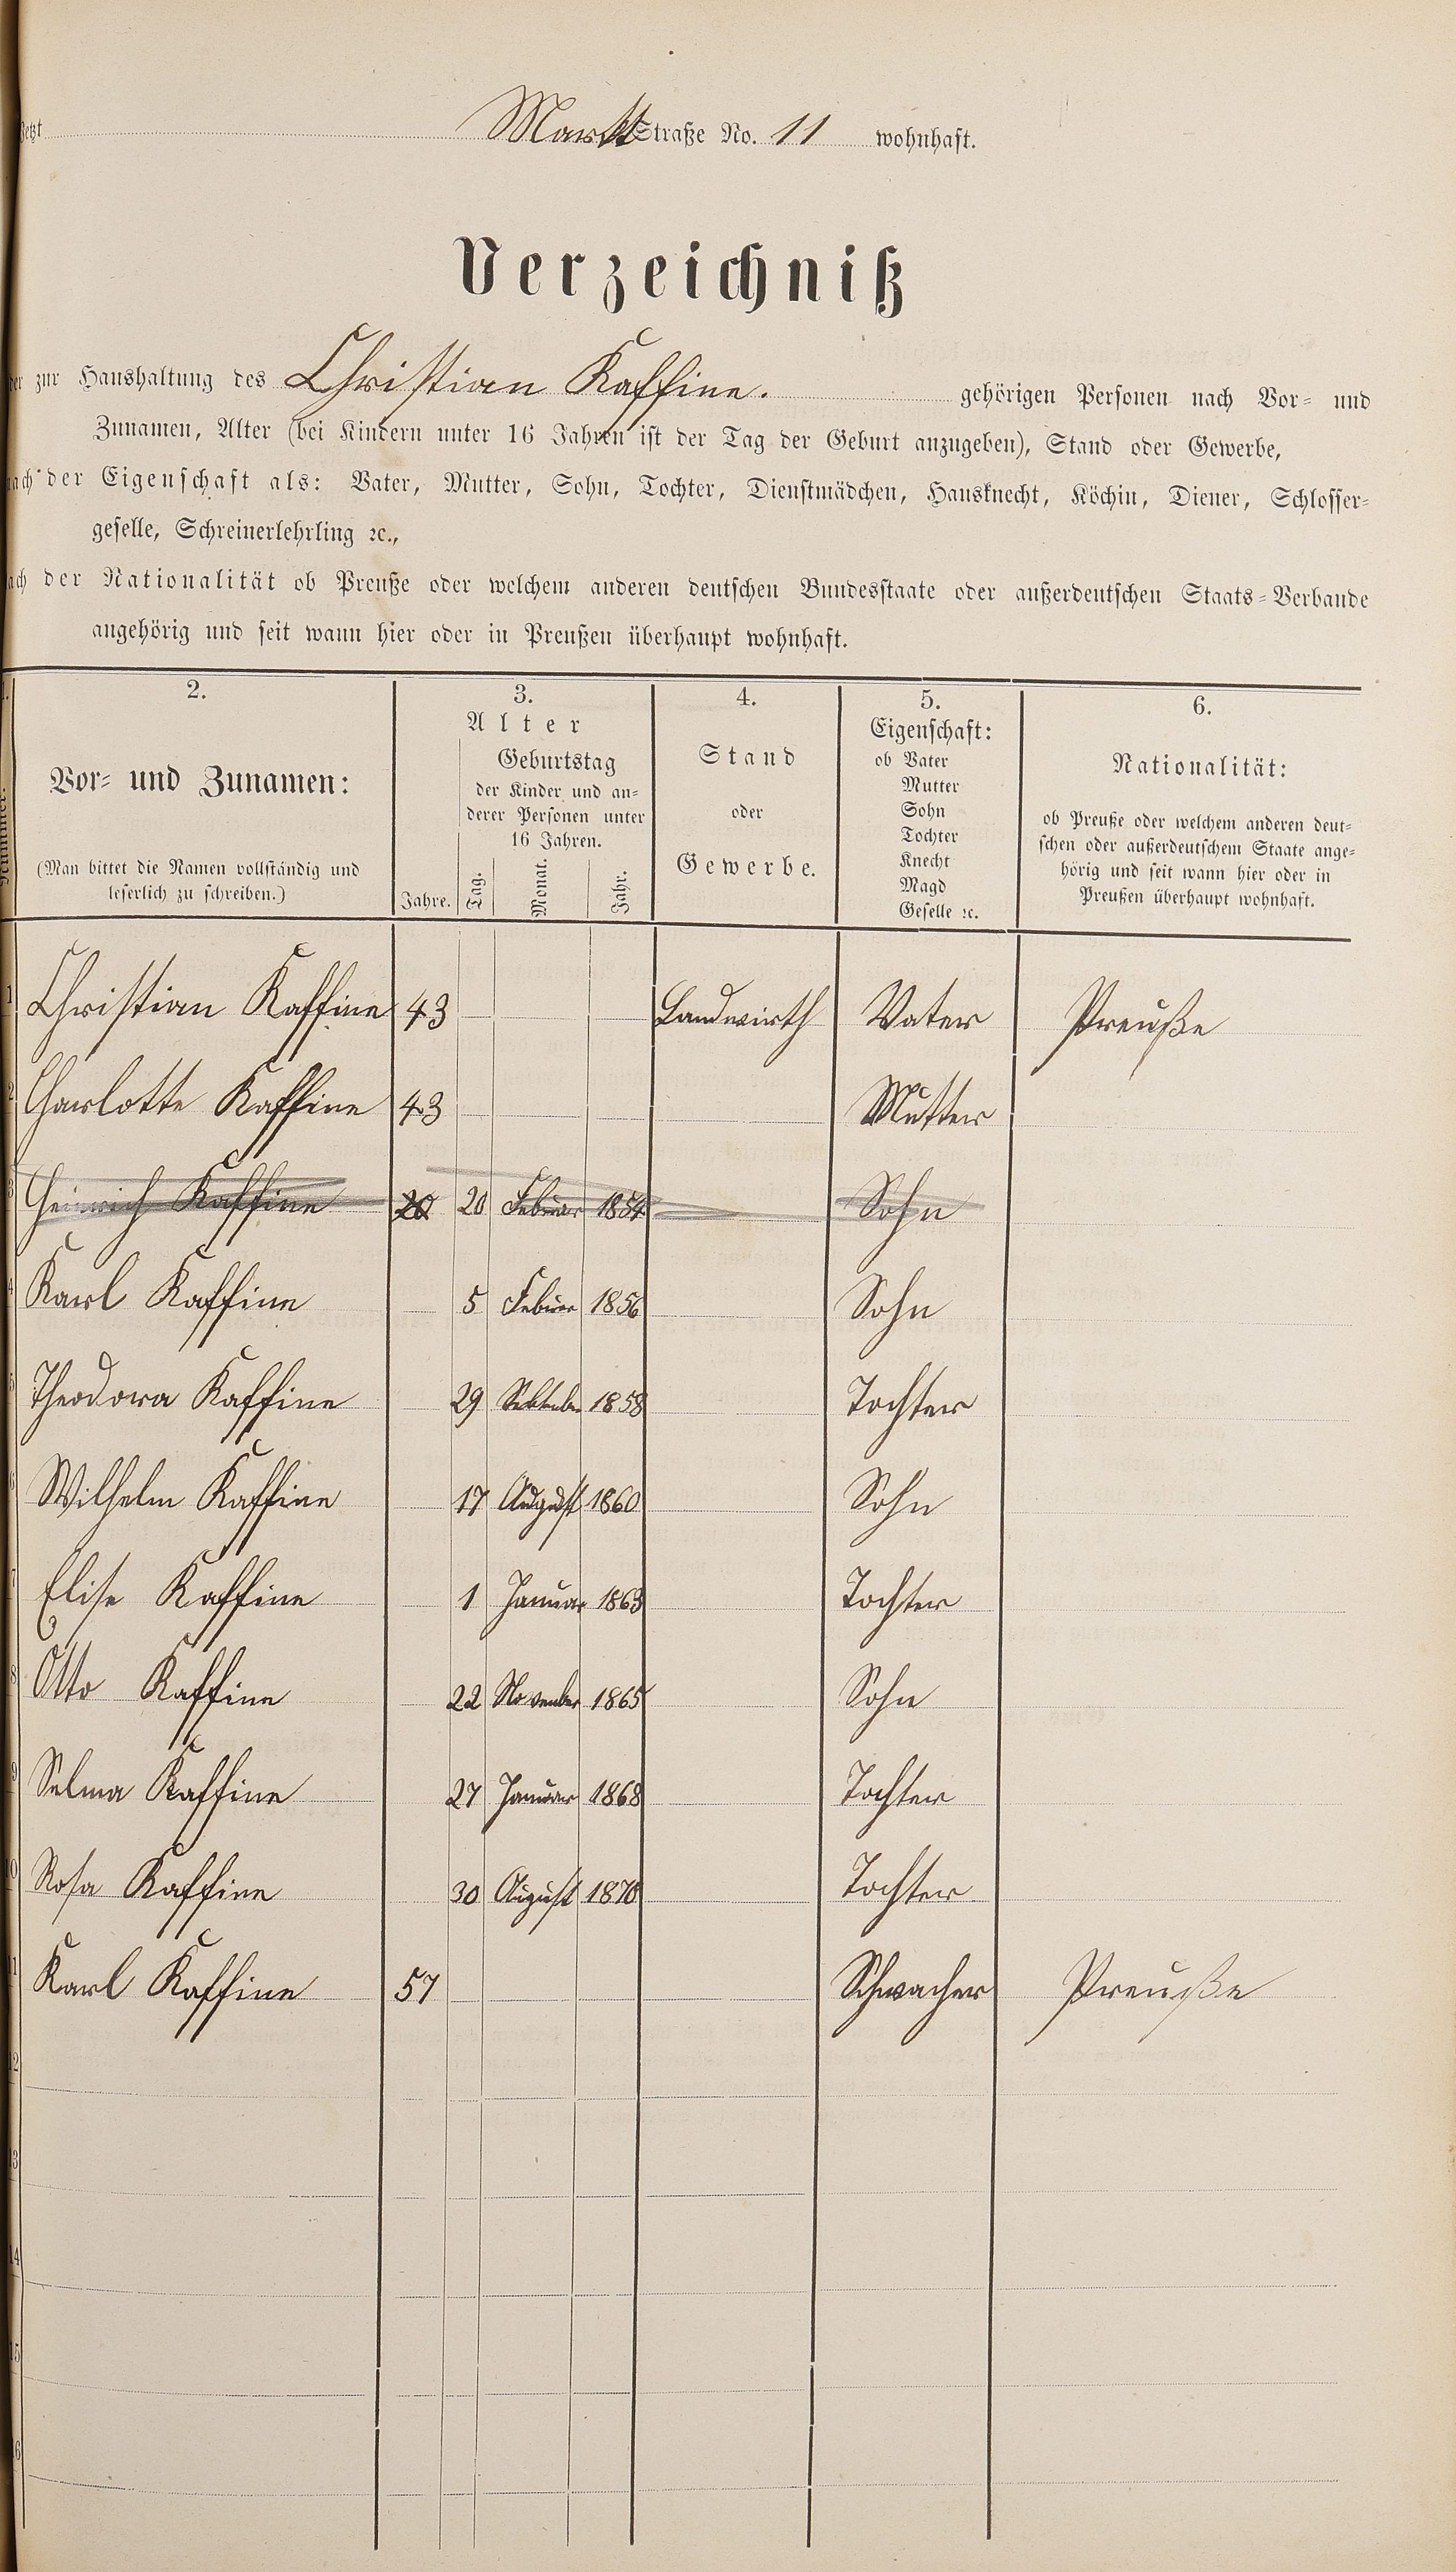 Jetzt Markt Straße No. 11 wohnhaft.
Verzeichniß
der zur Haushaltung des Christian Kaffine. gehörigen Personen nach Vor- und
Zunamen, Alter (bei Kindern unter 16 Jahren ist der Tag der Geburt anzugeben), Stand oder Gewerbe,
nach der Eigenschaft als: Vater, Mutter, Sohn, Tochter, Dienstmädchen, Hausknecht, Köchin, Diener, Schlosser-
geselle, Schreinerlehrling ꝛc.,
nach der Nationalität ob Preuße oder welchem anderen deutschen Bundesstaate oder außerdeutschen Staats-Verbande
angehörig und seit wann hier oder in Preußen überhaupt wohnhaft.
1. 2. 3. 4. 5. 6.
Nummer.
Vor- und Zunamen:
(Man bittet die Namen vollständig und
leserlich zu schreiben.)
Alter
Jahre.
Geburtstag
der Kinder und an-
derer Personen unter
16 Jahren.
Tag. Monat. Jahr.
Stand
oder
Gewerbe.
Eigenschaft:
ob Vater
Mutter
Sohn
Tochter
Knecht
Magd
Geselle ꝛc.
Nationalität:
ob Preuße oder welchem anderen deut-
schen oder außerdeutschem Staate ange-
hörig und seit wann hier oder in
Preußen überhaupt wohnhaft.
1 Christian Kaffine 43 Landwirth Vater Preuße
2 Charlotte Kaffine 43 Mutter
3 Heinrich Kaffine 20 20 Februar 1854 Sohn
4 Karl Kaffine 5 Februar 1856 Sohn
5 Theodora Kaffine 29 1858 Tochter
6 Wilhelm Kaffine 17 August 1860 Sohn
7 Elise Kaffine 1 Januar 1863 Tochter
8 Otto Kaffine 22 November 1865 Sohn
9 Selma Kaffine 27 Januar 1868 Tochter
10 Rosa Kaffine 30 August 1870 Tochter
11 Karl Kaffine 57 Schwacher Preuße
12
13
14
15
16